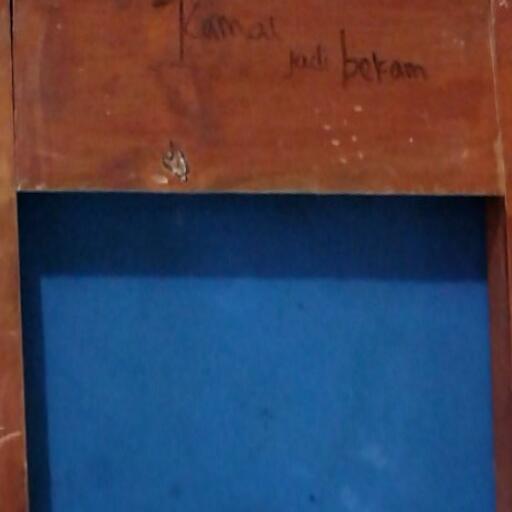 Kamal
jadi bekam